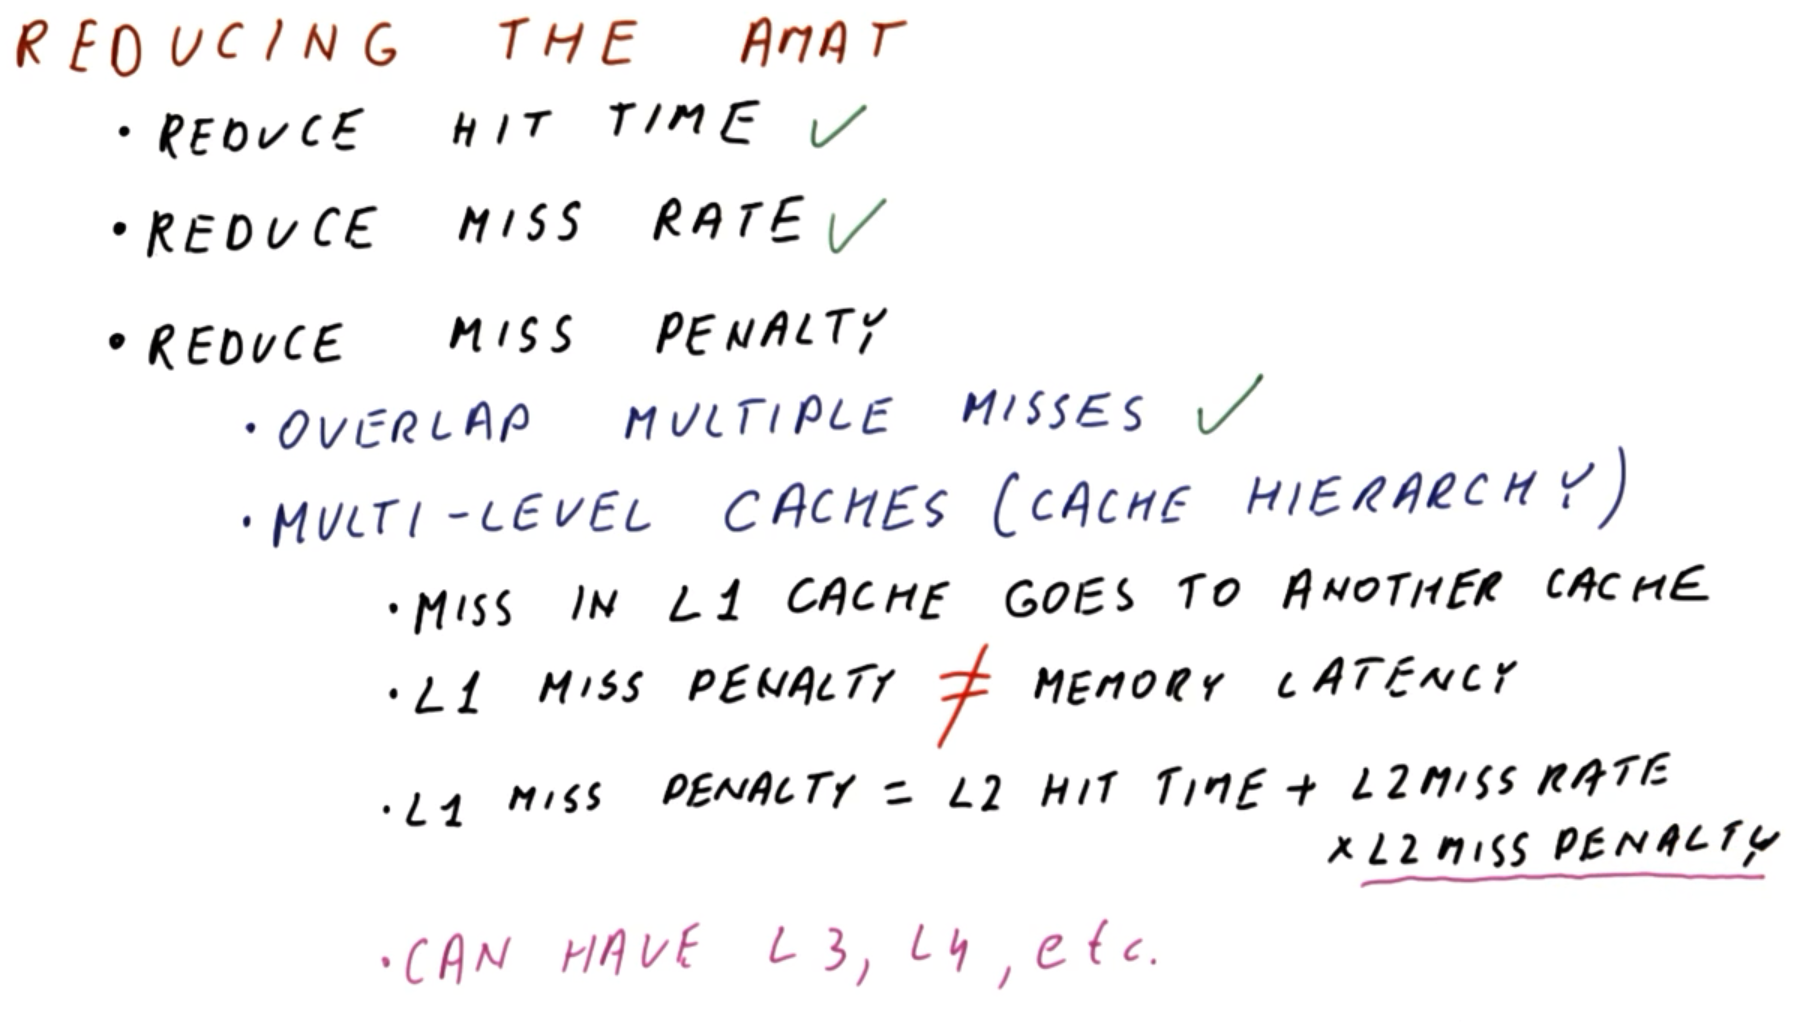 REDUCING THE AMAT
• REDUCE HIT TIME ✓
• REDUCE MISS RATE ✓
• REDUCE MISS PENALTY
• OVERLAP MULTIPLE MISSES ✓
• MULTI-LEVEL CACHES (CACHE HIERARCHY)
• MISS IN L1 CACHE GOES TO ANOTHER CACHE
• L1 MISS PENALTY ≠ MEMORY LATENCY
• L1 MISS PENALTY = L2 HIT TIME + L2 MISS RATE
× L2 MISS PENALTY
• CAN HAVE L3, L4, etc.